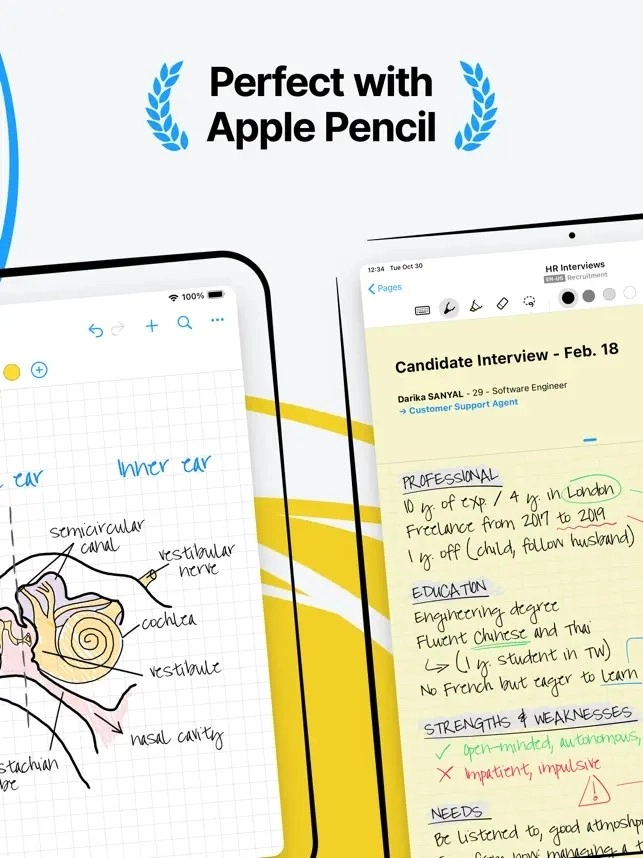 Perfect with
Apple Pencil
100%
ear
Inner ear
semicircular
canal
vestibular
nerve
cochlea
vestibule
nasal cavity
stachian
be
12:34 Tue Oct 30
HR Interviews
EN-US Recruitment
Pages
Candidate Interview - Feb. 18
Darika SANYAL - 29 - Software Engineer
→ Customer Support Agent
PROFESSIONAL
10 y. of exp. / 4 y. in London
Freelance from 2017 to 2019
1 y. off (child, follow husband)
EDUCATION
Engineering degree
Fluent Chinese and Thai
↳ (1 y. student in TW)
No French but eager to learn
STRENGTHS & WEAKNESSES
✓ Open-minded, autonomous,
✗ Impatient, impulsive
NEEDS
Be listened to, good atmosph
from now: managing a t